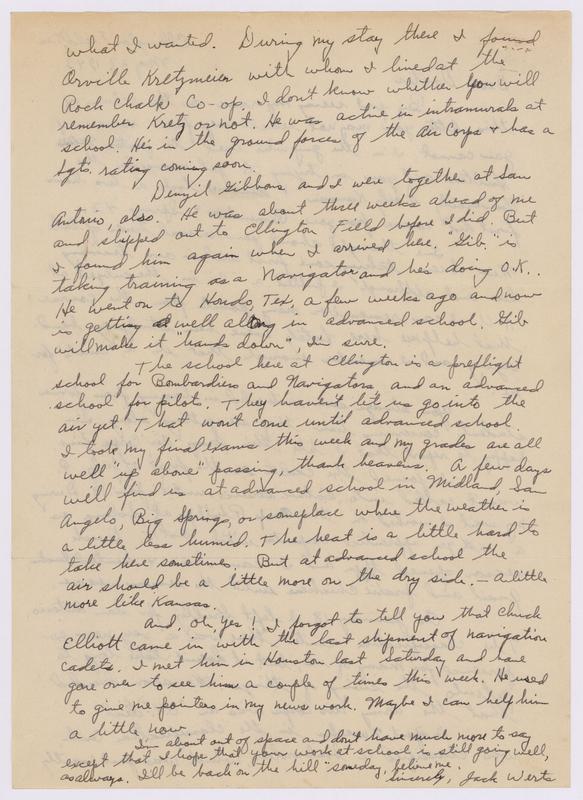 what I wanted. During my stay there I found
Orville Kretzmeier with whom I lived at the
Rock Chalk Co-op. I don't know whether you will
remember Kretz or not. He was active in intramurals at
school. He's in the ground forces of the Air Corps & has a
Sgts. rating coming soon.
Denzil Gibbons and I were together at San
Antonio, also. He was about three weeks ahead of me
and shipped out to Ellington Field before I did. But
I found him again when I arrived here. "Gib." is
taking training as a Navigator and he's doing O.K..
He went on to Hondo, Tex, a few weeks ago and now
is getting well along in advanced school. Gib
will make it "hands down", I'm sure.
The school here at Ellington is a preflight
school for Bombardiers and Navigators, and an advanced
school for pilots. They haven't let us go into the
air yet. That won't come until advanced school.
I took my final exams this week and my grades are all
well "up above" passing, thank heavens. A few days
will find us at advanced school in Midland, San
Angelo, Big Springs, or someplace where the weather is
a little less humid. The heat is a little hard to
take here sometimes. But at advanced school the
air should be a little more on the dry side. — a little
more like Kansas.
And, oh, yes! I forgot to tell you that Chuck
Elliott came in with the last shipment of navigation
cadets. I met him in Houston last Saturday and have
gone over to see him a couple of times this week. He used
to give me pointers in my news work. Maybe I can help him
a little now.
I'm about out of space and don't have much more to say
except that I hope that your work at school is still going well,
as always. I'll be back "on the hill" someday, believe me.
Sincerely, Jack Werts